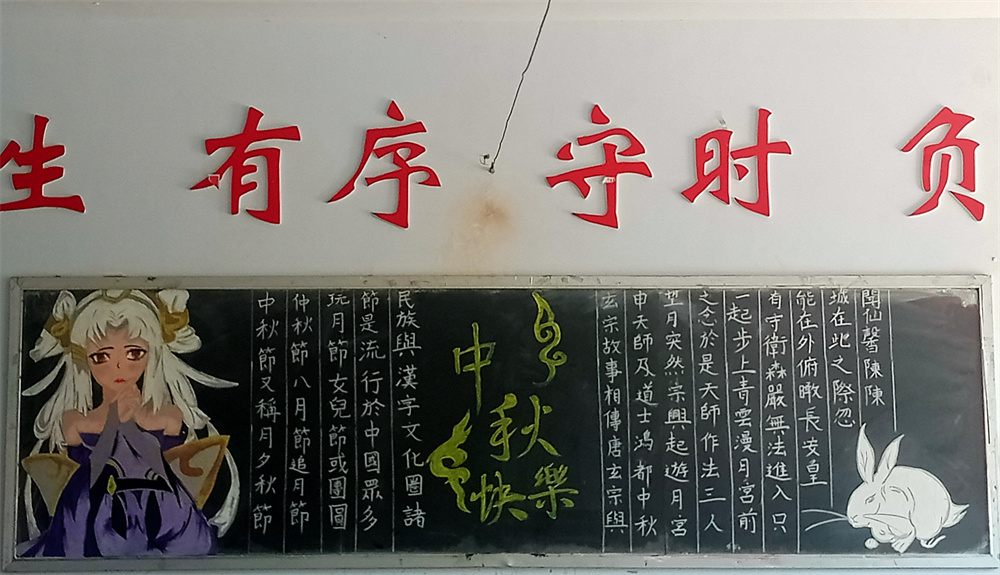 生 有序 守时 负
中秋節又稱月夕秋節
仲秋節八月節追月節
玩月節女兒節或團圖
節是流行於中國眾多
民族與漢字文化圖諸
中秋快樂
玄宗故事相傳唐玄宗與
申天師及道士鴻都中秋
望月突然宗興起遊月宮
之念於是天師作法三人
一起步上青雲漫月宮前
有守衛森嚴無法進入只
能在外俯瞰長安皇
城在此之際忽
聞仙馨陳陳